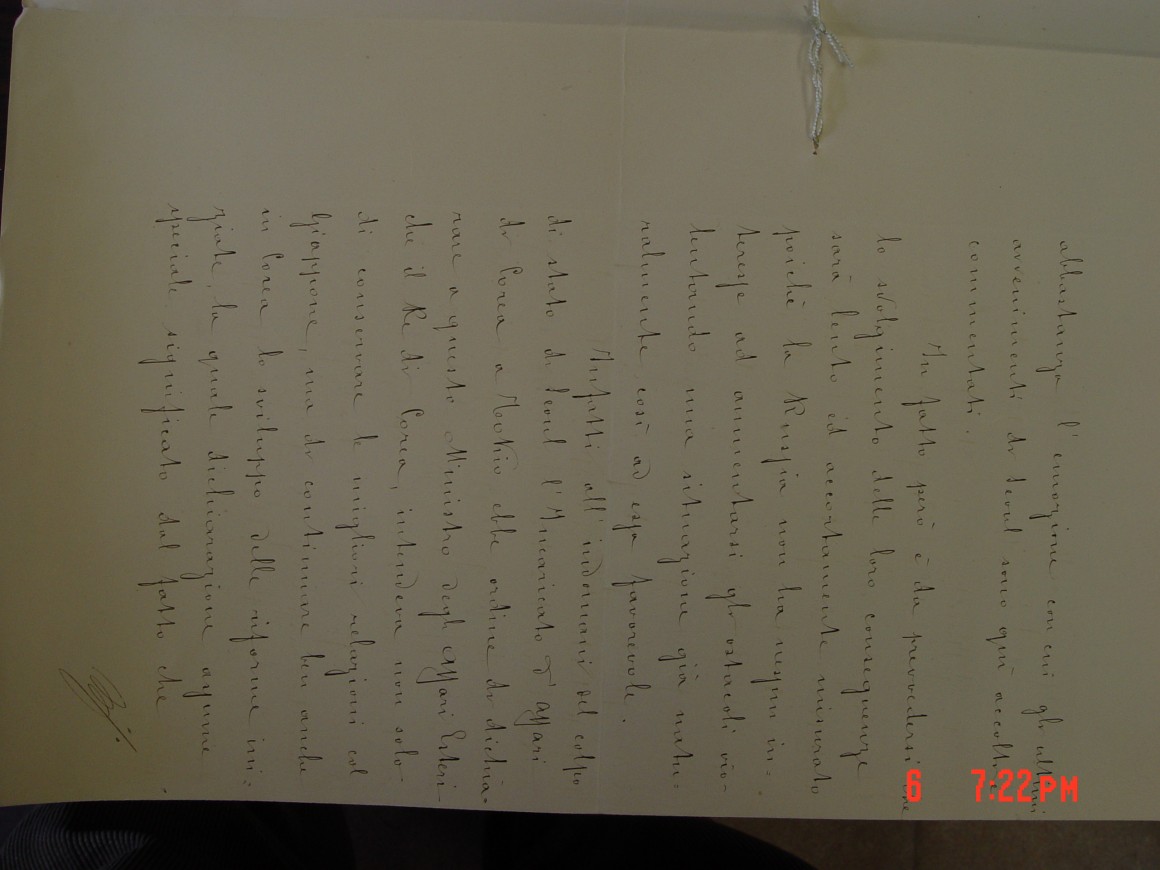 abbastanza l'emozione con cui gli ultimi
avvenimenti di Seoul sono quì accolti e
commentati.
In fatto però è da prevvedersi che
lo svolgimento delle loro conseguenze
sarà lento ed accortamente misurato
poichè la Russia non ha nessun in=
teresse ad aumentarsi gli ostacoli vio-
lentando una situazione già natu=
ralmente così ad essa favorevole.
Infatti all'indomani del colpo
di stato di Seoul l'Incaricato d'affari
di Corea a Tokio ebbe ordine di dichia=
rare a questo Ministro degli affari Esteri-
che il Re di Corea, intendeva non solo-
di conservare le migliori relazioni col
Giappone, ma di continuare ben anche
in Corea lo sviluppo delle riforme ini=
ziate, la quale dichiarazione assume
speciale significato dal fatto che
6 7:22PM